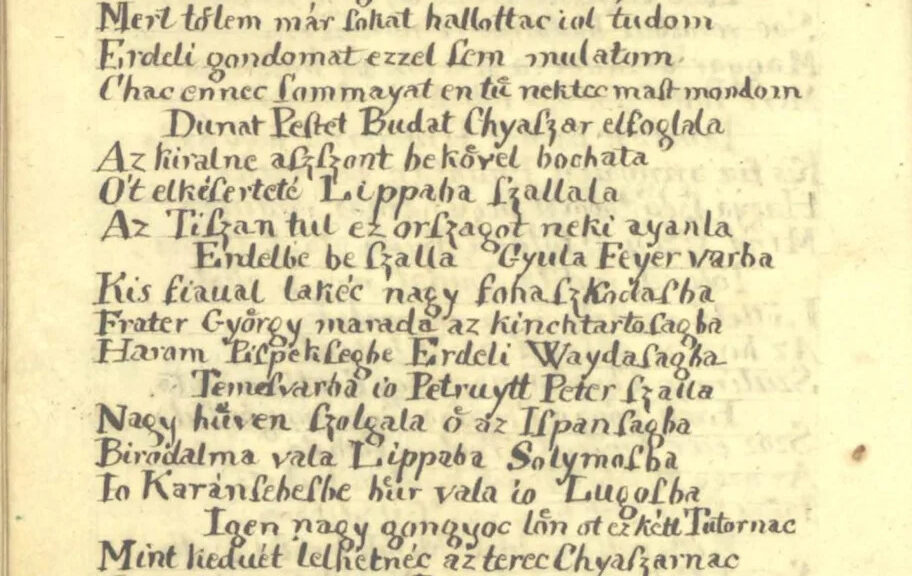 Mert tőlem már ſokat hallottac iol tudom
Erdeli gondomat ezzel ſem mulatom.
Chac ennec ſommayat en tuͤ nektec maſt mondom
Dunat Peſtet Budat Chyaſzar elfoglala
Az kiralne aſzſzont bekoͤvel bochata
Ot elkeſerteté Lippaba ſzallala
Az Tiſzan tul ez orſzagot neki ayanla
Erdelbe be ſzalla Gyula Feyer varba
Kis fiaual lakéc nagy fohaſzkodaſba
Frater Gyoͤrgy marada az kinchtartoſagba
Haram Piſpekſegbe Erdeli Waydaſagba
Temeſvarba io Petruytt Peter ſzalla
Nagy huͤven ſzolgala oͤ az Iſpanſagba
Birodalma vala Lippaba Solymoſba
Io Karánſebeſbe huͤr vala io Lugoſba
Igen nagy gongyoc loͤn ot ez kétt Tutornac
Mint keduét lelhetnéc az terec Chyaſzarnac